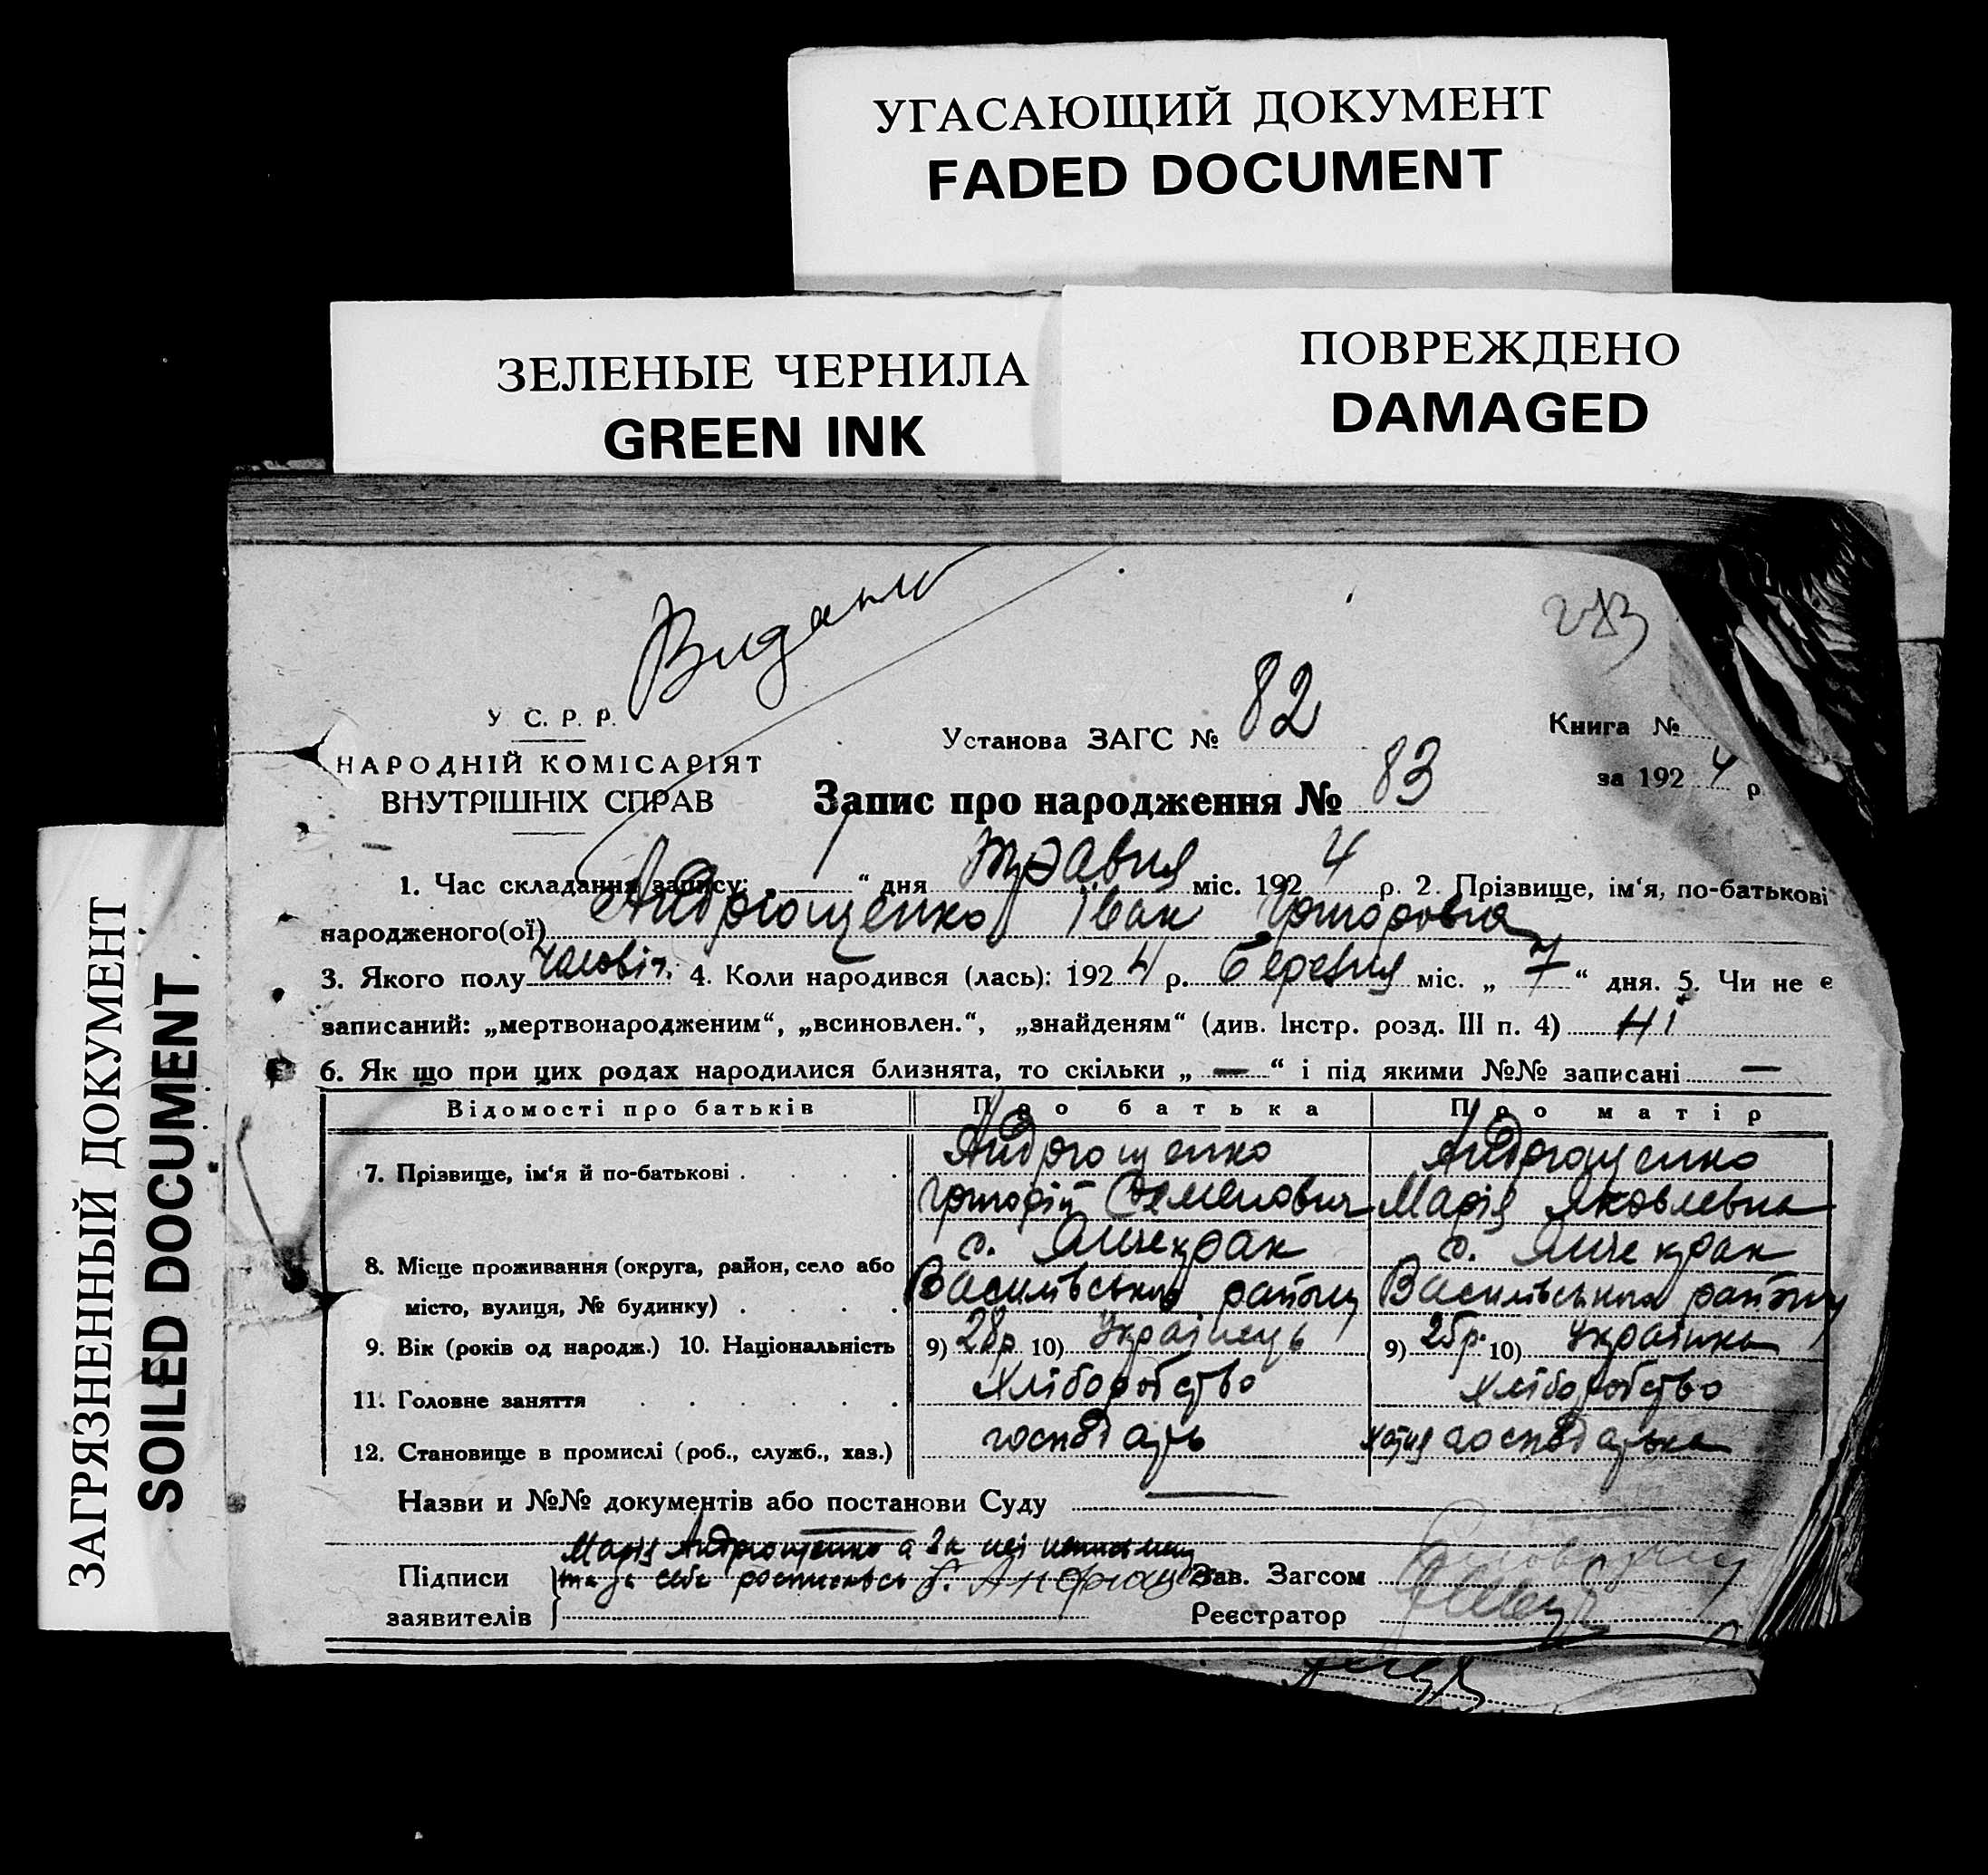 УГАСАЮЩИЙ ДОКУМЕНТ
FADED DOCUMENT
ЗЕЛЕНЫЕ ЧЕРНИЛА
GREEN INK
ПОВРЕЖДЕНО
DAMAGED
ЗАГРЯЗНЕННЫЙ ДОКУМЕНТ
SOILED DOCUMENT
Видано
283
У С. Р. Р.
НАРОДНІЙ КОМІСАРІЯТ
ВНУТРІШНІХ СПРАВ
Установа ЗАГС № 82
Книга №
за 1924 р
Запис про народження № 83
1. Час складання запису: 1 “ дня травня міс. 1924 р. 2. Прізвище, ім‘я, по-батькові
народженого(ої) Андрющенко Іван Григорович
3. Якого полу чоловіч. 4. Коли народився (лась): 1924 р. березня міс. „ 7 “ дня. 5. Чи не є
записаний: „мертвонародженим“, „всиновлен.“, „знайденям“ (див. Інстр. розд. III п. 4) ні
6. Як що при цих родах народилися близнята, то скільки „ — “ і під якими №№ записані —
Відомості про батьків Про батька Про матір
7. Прізвище, ім‘я й по-батькові Андрющенко Григорій Семенович Андрющенко Марія Яковлевна
8. Місце проживання (округа, район, село або
місто, вулиця, № будинку) с. Янчекрак Василівського району с. Янчекрак Василівського району
9. Вік (років од народж.) 10. Національність 9) 28р 10) Українець 9) 25р. 10) Українка
11. Головне заняття Хліборобство Хліборобство
12. Становище в промислі (роб., служб., хаз.) господарь господарька
Назви и №№ документів або постанови Суду
Марія Андрющенко а за неї
Підписи та за себе Зав. Загсом
заявителів Реєстратор